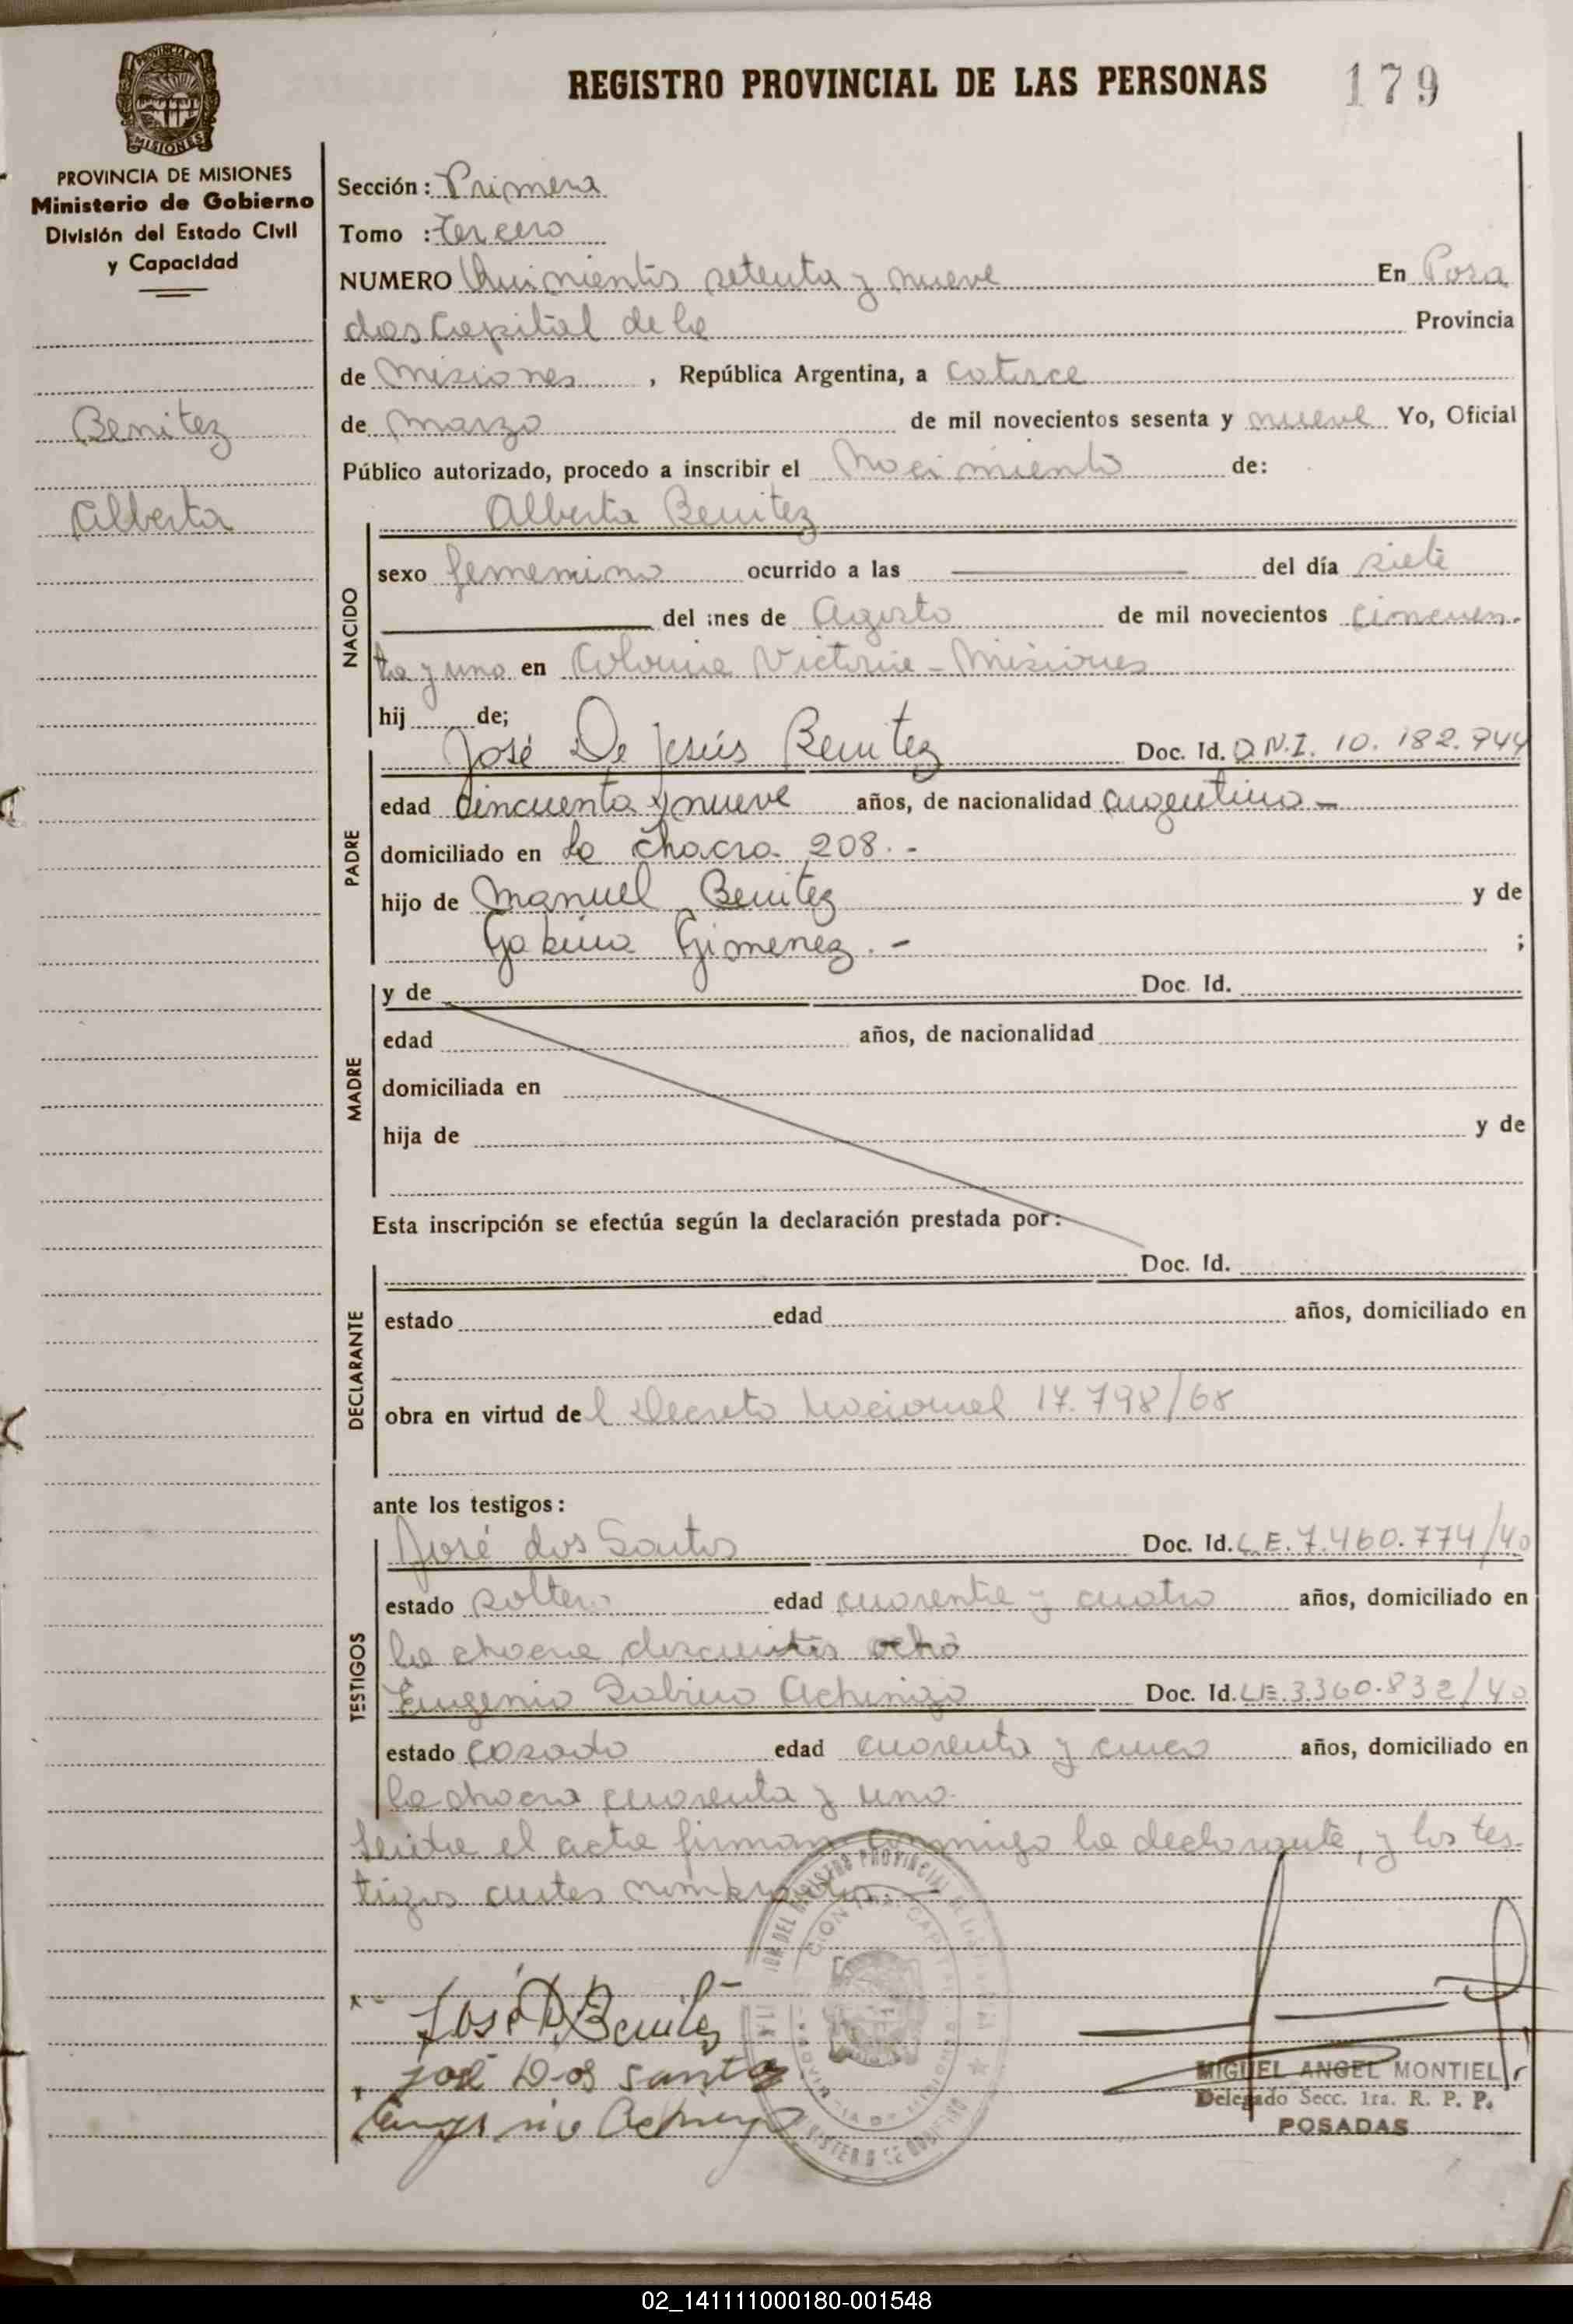 REGISTRO PROVINCIAL DE LAS PERSONAS 179
MISIONES
PROVINCIA DE MISIONES
Ministerio de Gobierno
División del Estado Civil
y Capacidad
Benitez
Alberta
Sección: Primera
Tomo : tercero
NUMERO Quinientos setenta y nueve En Posa
das Capital de la Provincia
de Misiones , República Argentina, a catorce
de marzo de mil novecientos sesenta y nueve Yo, Oficial
Público autorizado, procedo a inscribir el Nacimiento de:
Alberta Benitez
NACIDO
sexo femenino ocurrido a las del día siete
del mes de Agosto de mil novecientos cincuen-
ta y uno en Colonia Victoria - Misiones
hij de;
PADRE
José De Jesús Benitez Doc. Id. D.N.I. 10.182.944
edad cincuenta y nueve años, de nacionalidad argentino -
domiciliado en la chacra 208. -
hijo de Manuel Benitez y de
Gabina Gimenez. - ;
MADRE
y de Doc. Id.
edad años, de nacionalidad
domiciliada en
hija de y de
Esta inscripción se efectúa según la declaración prestada por:
DECLARANTE
Doc. Id.
estado edad años, domiciliado en
obra en virtud del Decreto Nacional 17.798/68
ante los testigos:
TESTIGOS
José dos Santos Doc. Id. L.E. 7.460.774/40
estado soltero edad cuarenta y cuatro años, domiciliado en
la chacra doscientos ocho
Eugenio Sabino Doc. Id. L.E. 3.360.832/40
estado casado edad cuarenta y cinco años, domiciliado en
la chacra cuarenta y uno
Leida el acta firman conmigo la declarante, y los tes-
tigos antes nombrados.
José D. Benitez
José Dos Santos
Eugenio
MIGUEL ANGEL MONTIEL
Delegado Secc. 1ra. R. P. P.
POSADAS
02_141111000180-001548